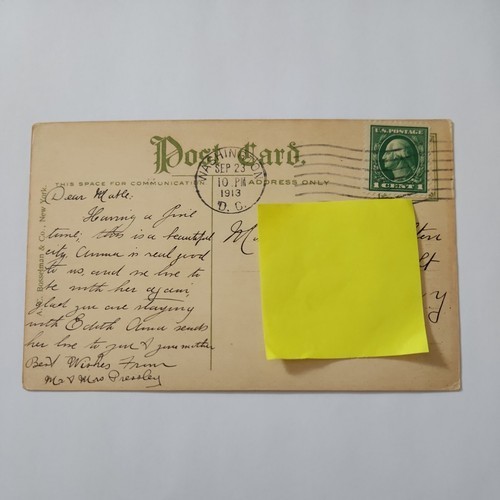 Post Card.
THIS SPACE FOR COMMUNICATION
ADDRESS ONLY
U.S. POSTAGE
1 CENT 1
WASHINGTON
SEP 23
10 PM
1913
D. C.
Bosselman & Co., New York.
Dear Mable.
Having a fine
time, this is a beautiful
city. Anna is real good
to us, and we love to
be with her again,
glad you are staying
with Edith Anna sends
her love to you & your mother
Best Wishes From
Mr & Mrs Pressley